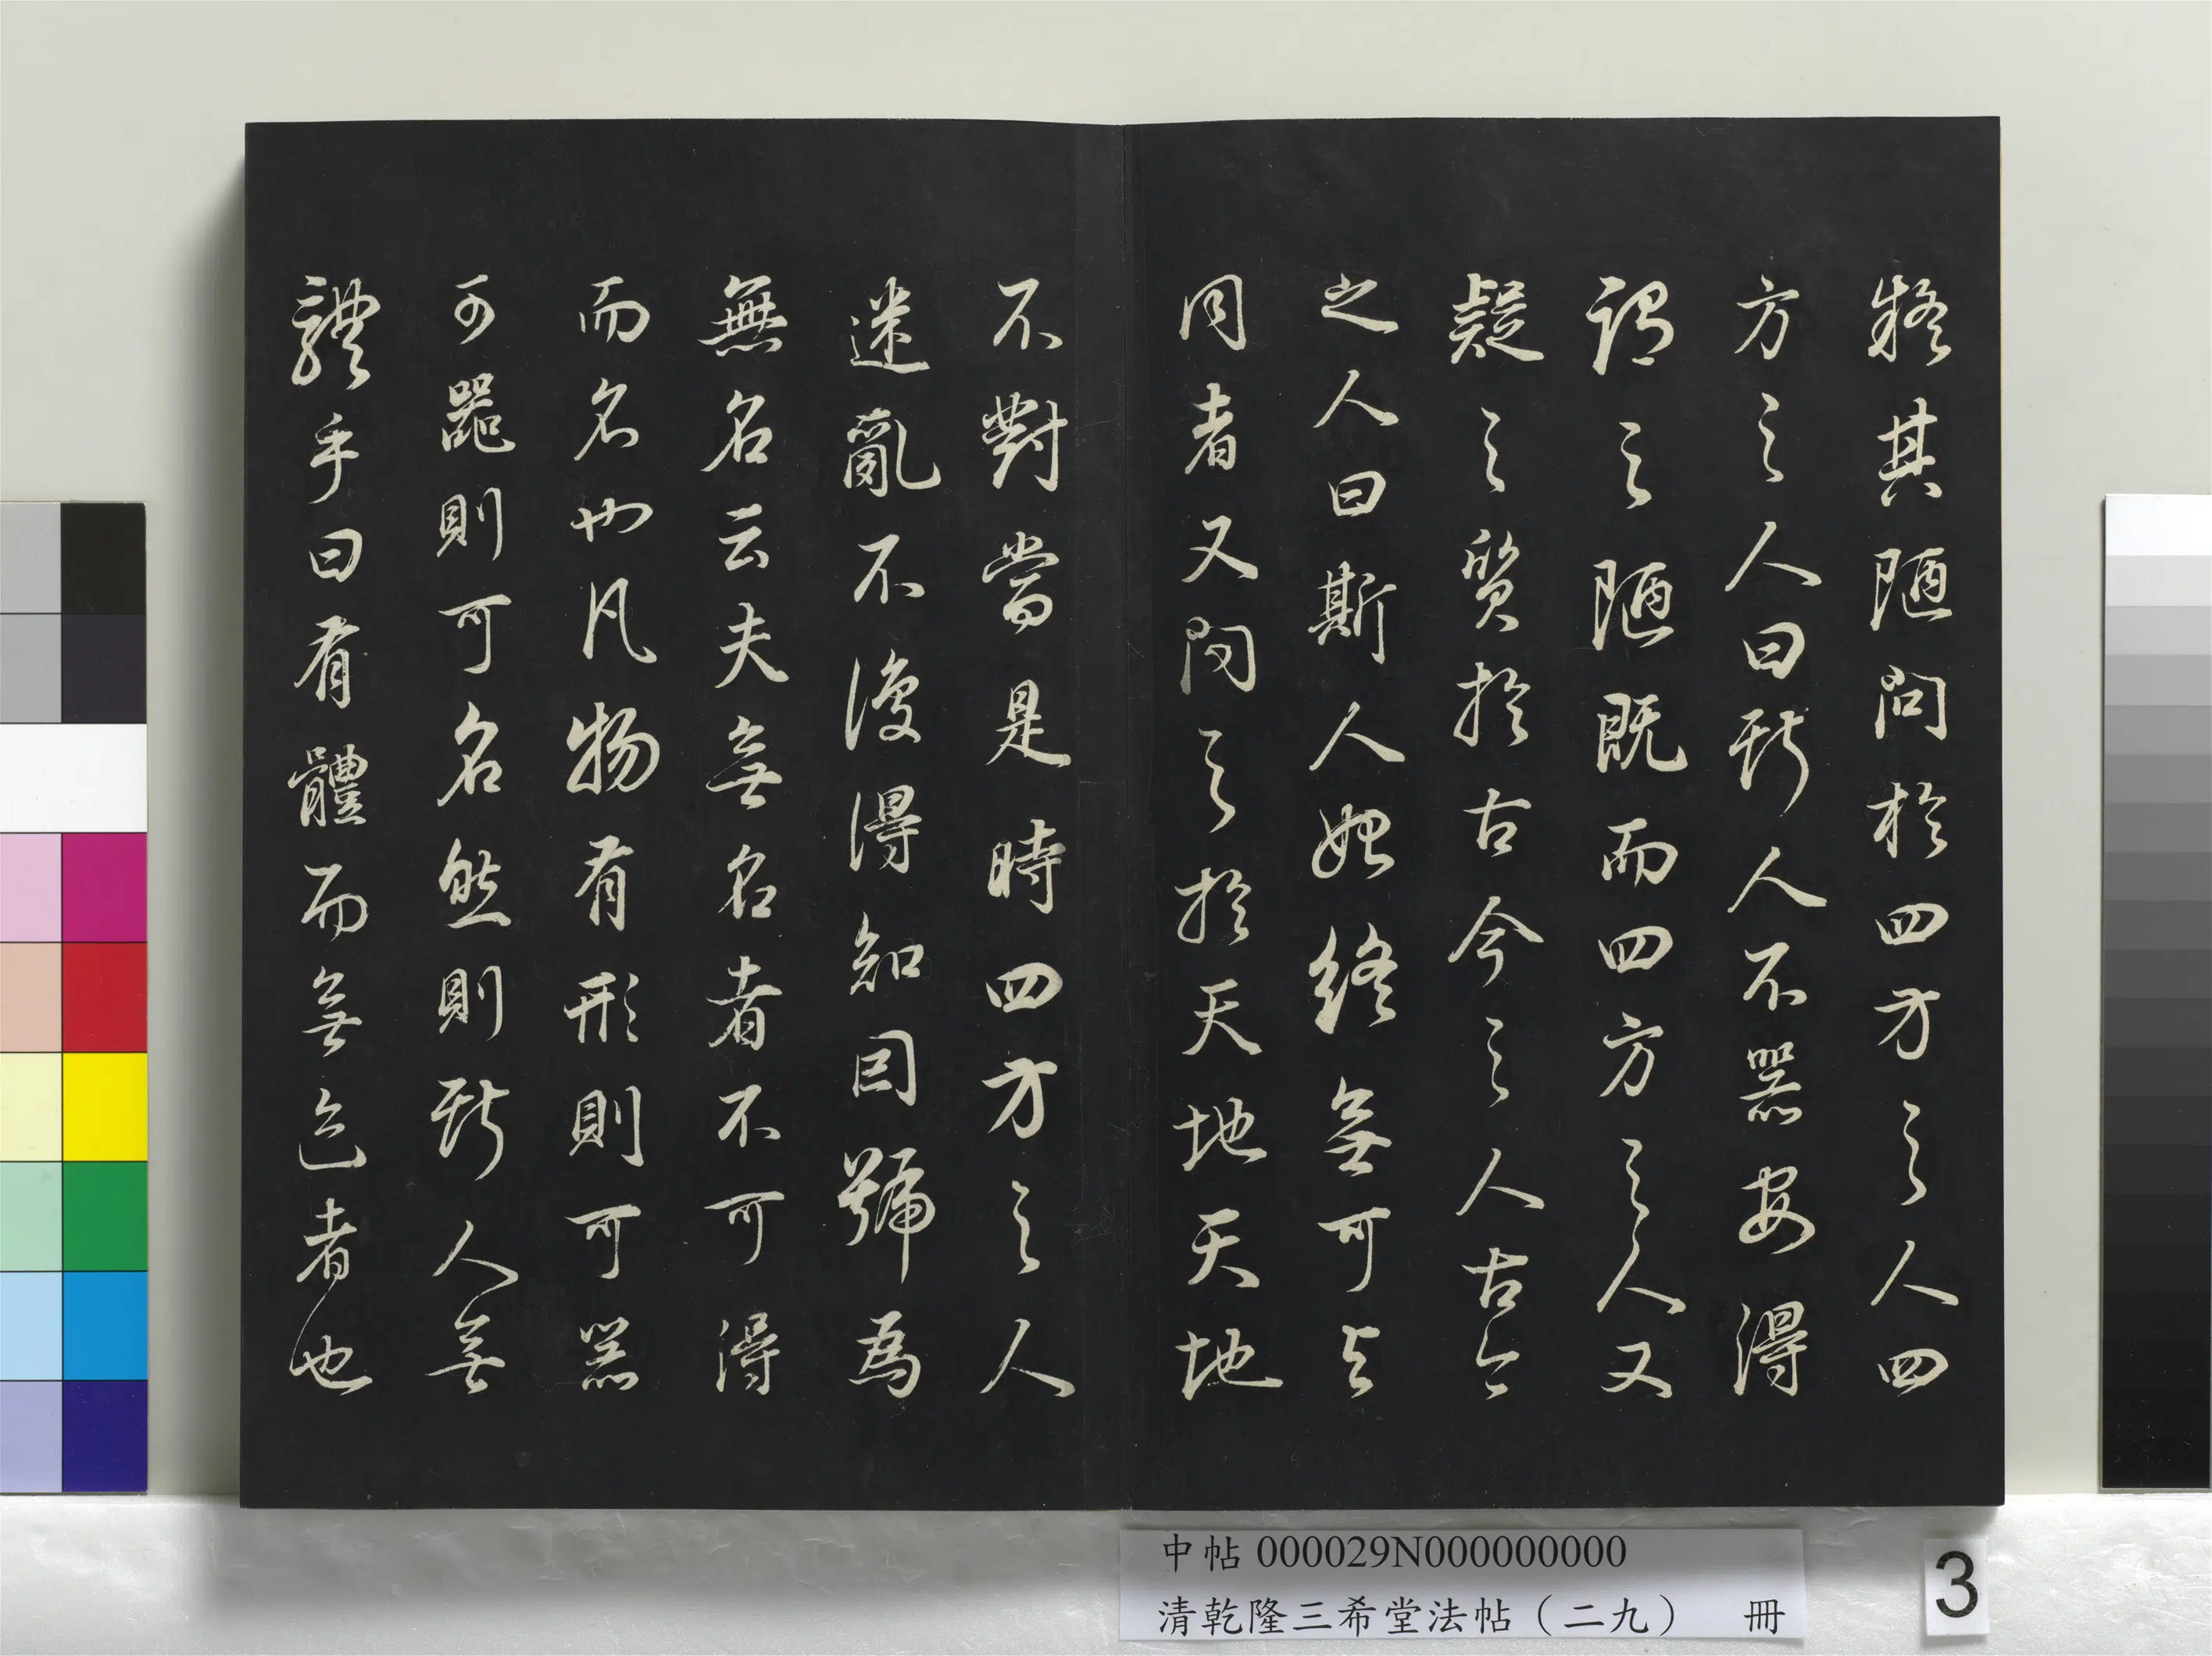 疑其陋問於四方之人四
方之人曰斯人不器安得
謂之陋既而四方之人又
疑之質於古今之人古今
之人曰斯人始終無可與
同者又問之於天地天地
不對當是時四方之人
迷亂不復得知因號為
無名云夫無名者不可得
而名也凡物有形則可器
可器則可名然則斯人無
體乎曰有體而無色者也
中帖 000029N000000000
清乾隆三希堂法帖（二九） 冊
3